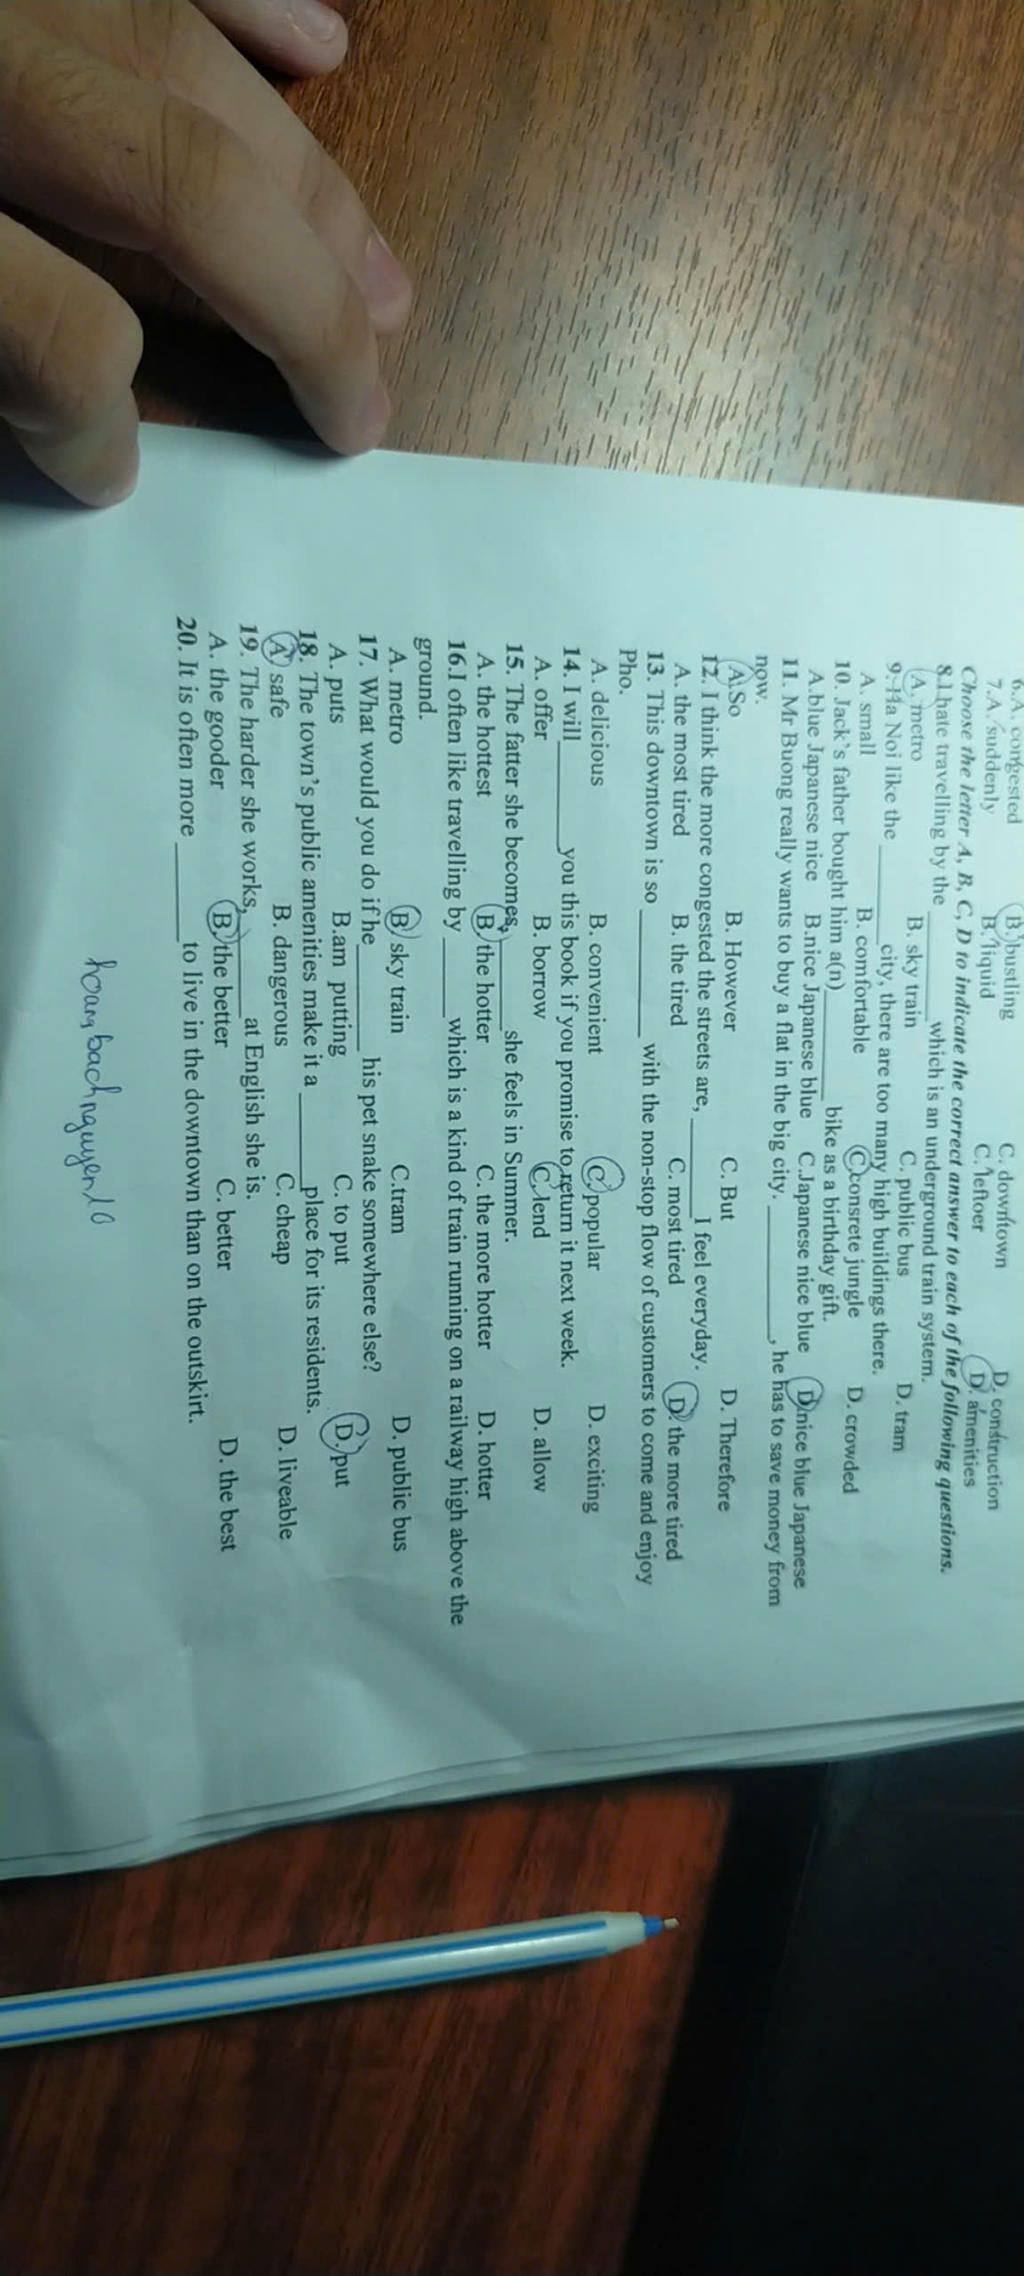 6.A. congested B. bustling C. downtown D. construction
7.A. suddenly B. liquid C. leftoer D. amenities
Choose the letter A, B, C, D to indicate the correct answer to each of the following questions.
8.I hate travelling by the ______ which is an underground train system.
A. metro B. sky train C. public bus D. tram
9. Ha Noi like the ______ city, there are too many high buildings there.
A. small B. comfortable C. consrete jungle D. crowded
10. Jack's father bought him a(n) ______ bike as a birthday gift.
A.blue Japanese nice B.nice Japanese blue C.Japanese nice blue D.nice blue Japanese
11. Mr Buong really wants to buy a flat in the big city. ______, he has to save money from
now.
A.So B. However C. But D. Therefore
12. I think the more congested the streets are, ______ I feel everyday.
A. the most tired B. the tired C. most tired D. the more tired
13. This downtown is so ______ with the non-stop flow of customers to come and enjoy
Pho.
A. delicious B. convenient C. popular D. exciting
14. I will ______ you this book if you promise to return it next week.
A. offer B. borrow C. lend D. allow
15. The fatter she becomes, ______ she feels in Summer.
A. the hottest B. the hotter C. the more hotter D. hotter
16.I often like travelling by ______ which is a kind of train running on a railway high above the
ground.
A. metro B. sky train C.tram D. public bus
17. What would you do if he ______ his pet snake somewhere else?
A. puts B.am putting C. to put D. put
18. The town's public amenities make it a ______ place for its residents.
A. safe B. dangerous C. cheap D. liveable
19. The harder she works, ______ at English she is.
A. the gooder B. the better C. better D. the best
20. It is often more ______ to live in the downtown than on the outskirt.
hoangbachnguyen10